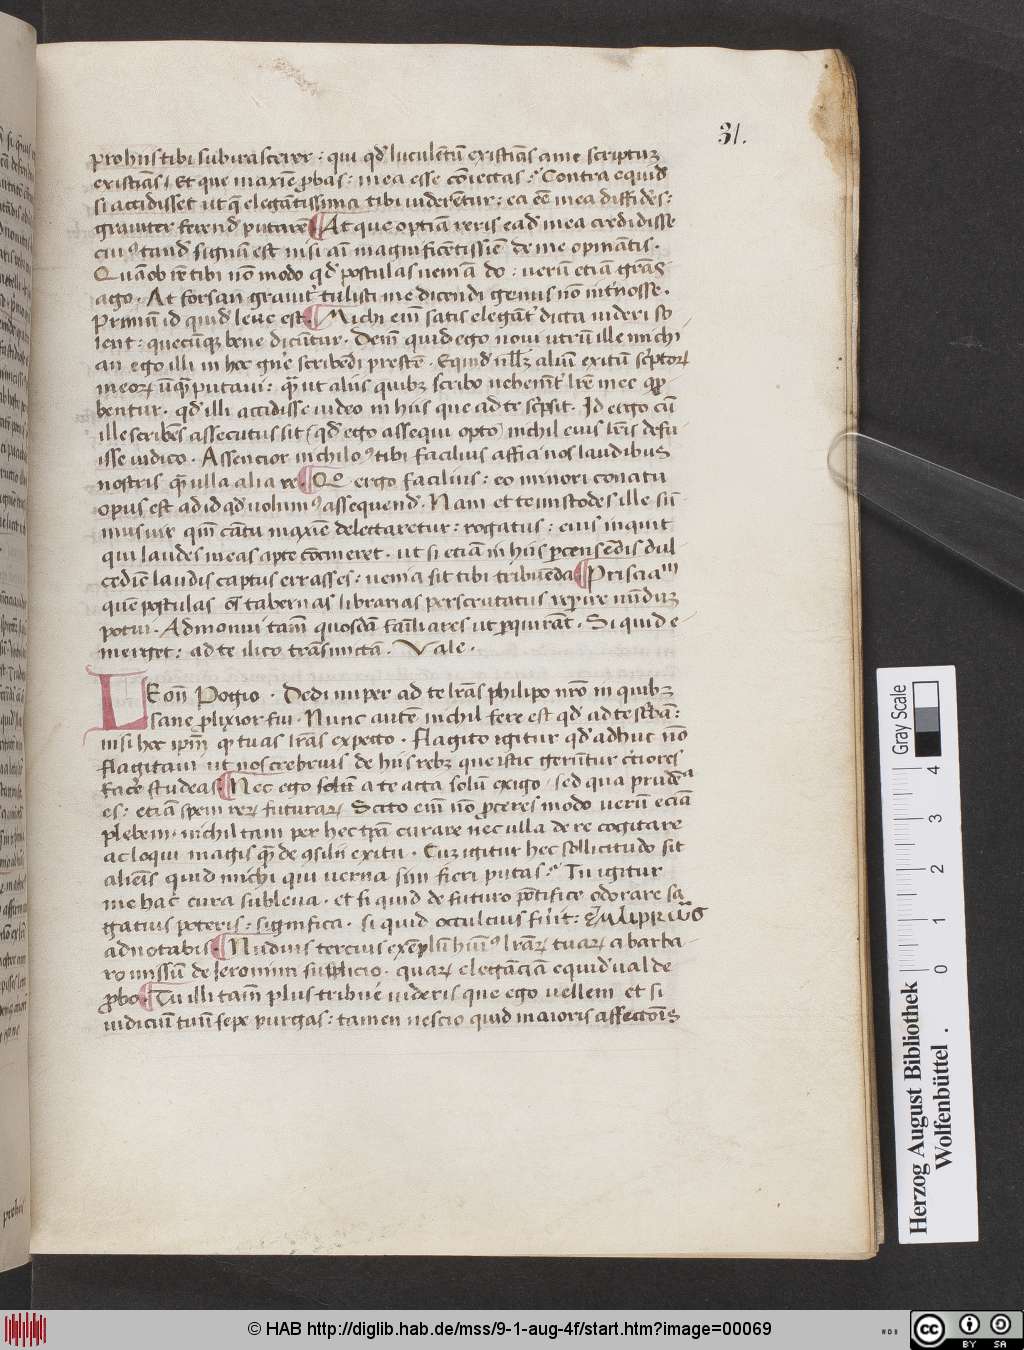 31.
pro hiis tibi subirascerer · qui qđ luculentū existiās a me scriptuʒ
existiās / Et que maxīe ꝓbas : mea esse cōiectas :' Contra equid
si accidisset ut q̄ elegātissima tibi uiderētur : ea eē mea diffidēs :
grauiter ferend putarē At que optiā reris eađ mea credidisse
cuiꝰ tand signūm est nisi aī magnificētissiē de me opināntis ·
Quāob rē tibi nō modo qđ postulas ueniā do : uerū etiā grās
ago · At forsan grauit' tulisti me dicendi genus nō int'nosse ·
Primū id quid leue est Michi eīm satis elegāt' dicta uideri so
lent : quecūqʒ bene dicūtur · Dem̄ quid ego noui utrū ille michi
an ego illi in hoc gn̄e scribēdi prestē · Equid nll'ʒ aliū exitū sc̄ptoꝝ
meoꝝ ūqꝫ putaui : qꝫ ut aliis quibʒ scribo uehemt' lr̄e mee ꝓ
bentur · qđ illi accidisse uideo in hiis que ad te sc̄psit · Id ergo cū
ille scribēs assecutus sit (qđ ego assequi opto) nichil eius lr̄is defu
isse iudico · Assencior nichilo9 tibi facilius affici nos laudibus
nostris qꝫ ulla alia re Q ergo facilius : eo minori conatu
opus est ad id qđ uolum9 assequend · Nam et temistodes ille sū
mus uir qm̄ cātu maxīe delectaretur : rogatus : eius inquit
qui laudes meas apte cōcineret · ut si etiam in hiis ꝑcensēdis dul
cedīe laudis captus errasses : uenia sit tibi tribuēda Priscianū
quē postulas oēs tabernas librarias perscrutatus reꝑire nūduʒ
potui · Admonui tam̄ quosdā fāiliares ut ꝑquirāt · Si quid e
merget : ad te ilico trāsmictā · Vale ·
LEon̄ Pogio · Dedi nuper ad te lr̄as philipo nr̄o in quibʒ
sane ꝓlixior fui · Nunc autē nichil fere est qđ ad te sc̄bā :
nisi hoc ip̄m qꝫ tuas lr̄as expecto · flagito igitur qđ adhuc nō
flagitaui ut nos crebrius de hiis rebʒ que istic gerūtur c̄ciores
facere studeas Nec ego solū a te acta solū exigo · sed qua prudēcia
es : etiā spem reꝝ futuraꝝ Scito eīm nō ꝓceres modo uerū eciā
plebem · nichil tam per hec tp̄a curare nec ulla de re cogitare
ac loqui magis qꝫ de 9silii exitu · Cuʒ igitur hec sollicitudo sit
aliēis quid michi qui uerna sum fieri putas :' Tu igitur
me hac cura subleua · et si quid de futuro pōtifice odorare sa
gatius poteris : significa · si quid occulcius fu'it :
adnotabis Nudius tercius exēplū huī9 lr̄aꝝ tuaꝝ a barba ·
ro missū de Ieronimi suplicio · quaꝝ elegāciā equid ualde
ꝓbo Tu illi tam̄ plus tribue uideris que ego uellem et si
iudiciū tuū sepe purgas : tamen nescio quid maioris affectois
prohiis
Herzog August Bibliothek
Wolfenbüttel .
Gray Scale
0 1 2 3 4
© HAB http://diglib.hab.de/mss/9-1-aug-4f/start.htm?image=00069
WDB
cc BY SA